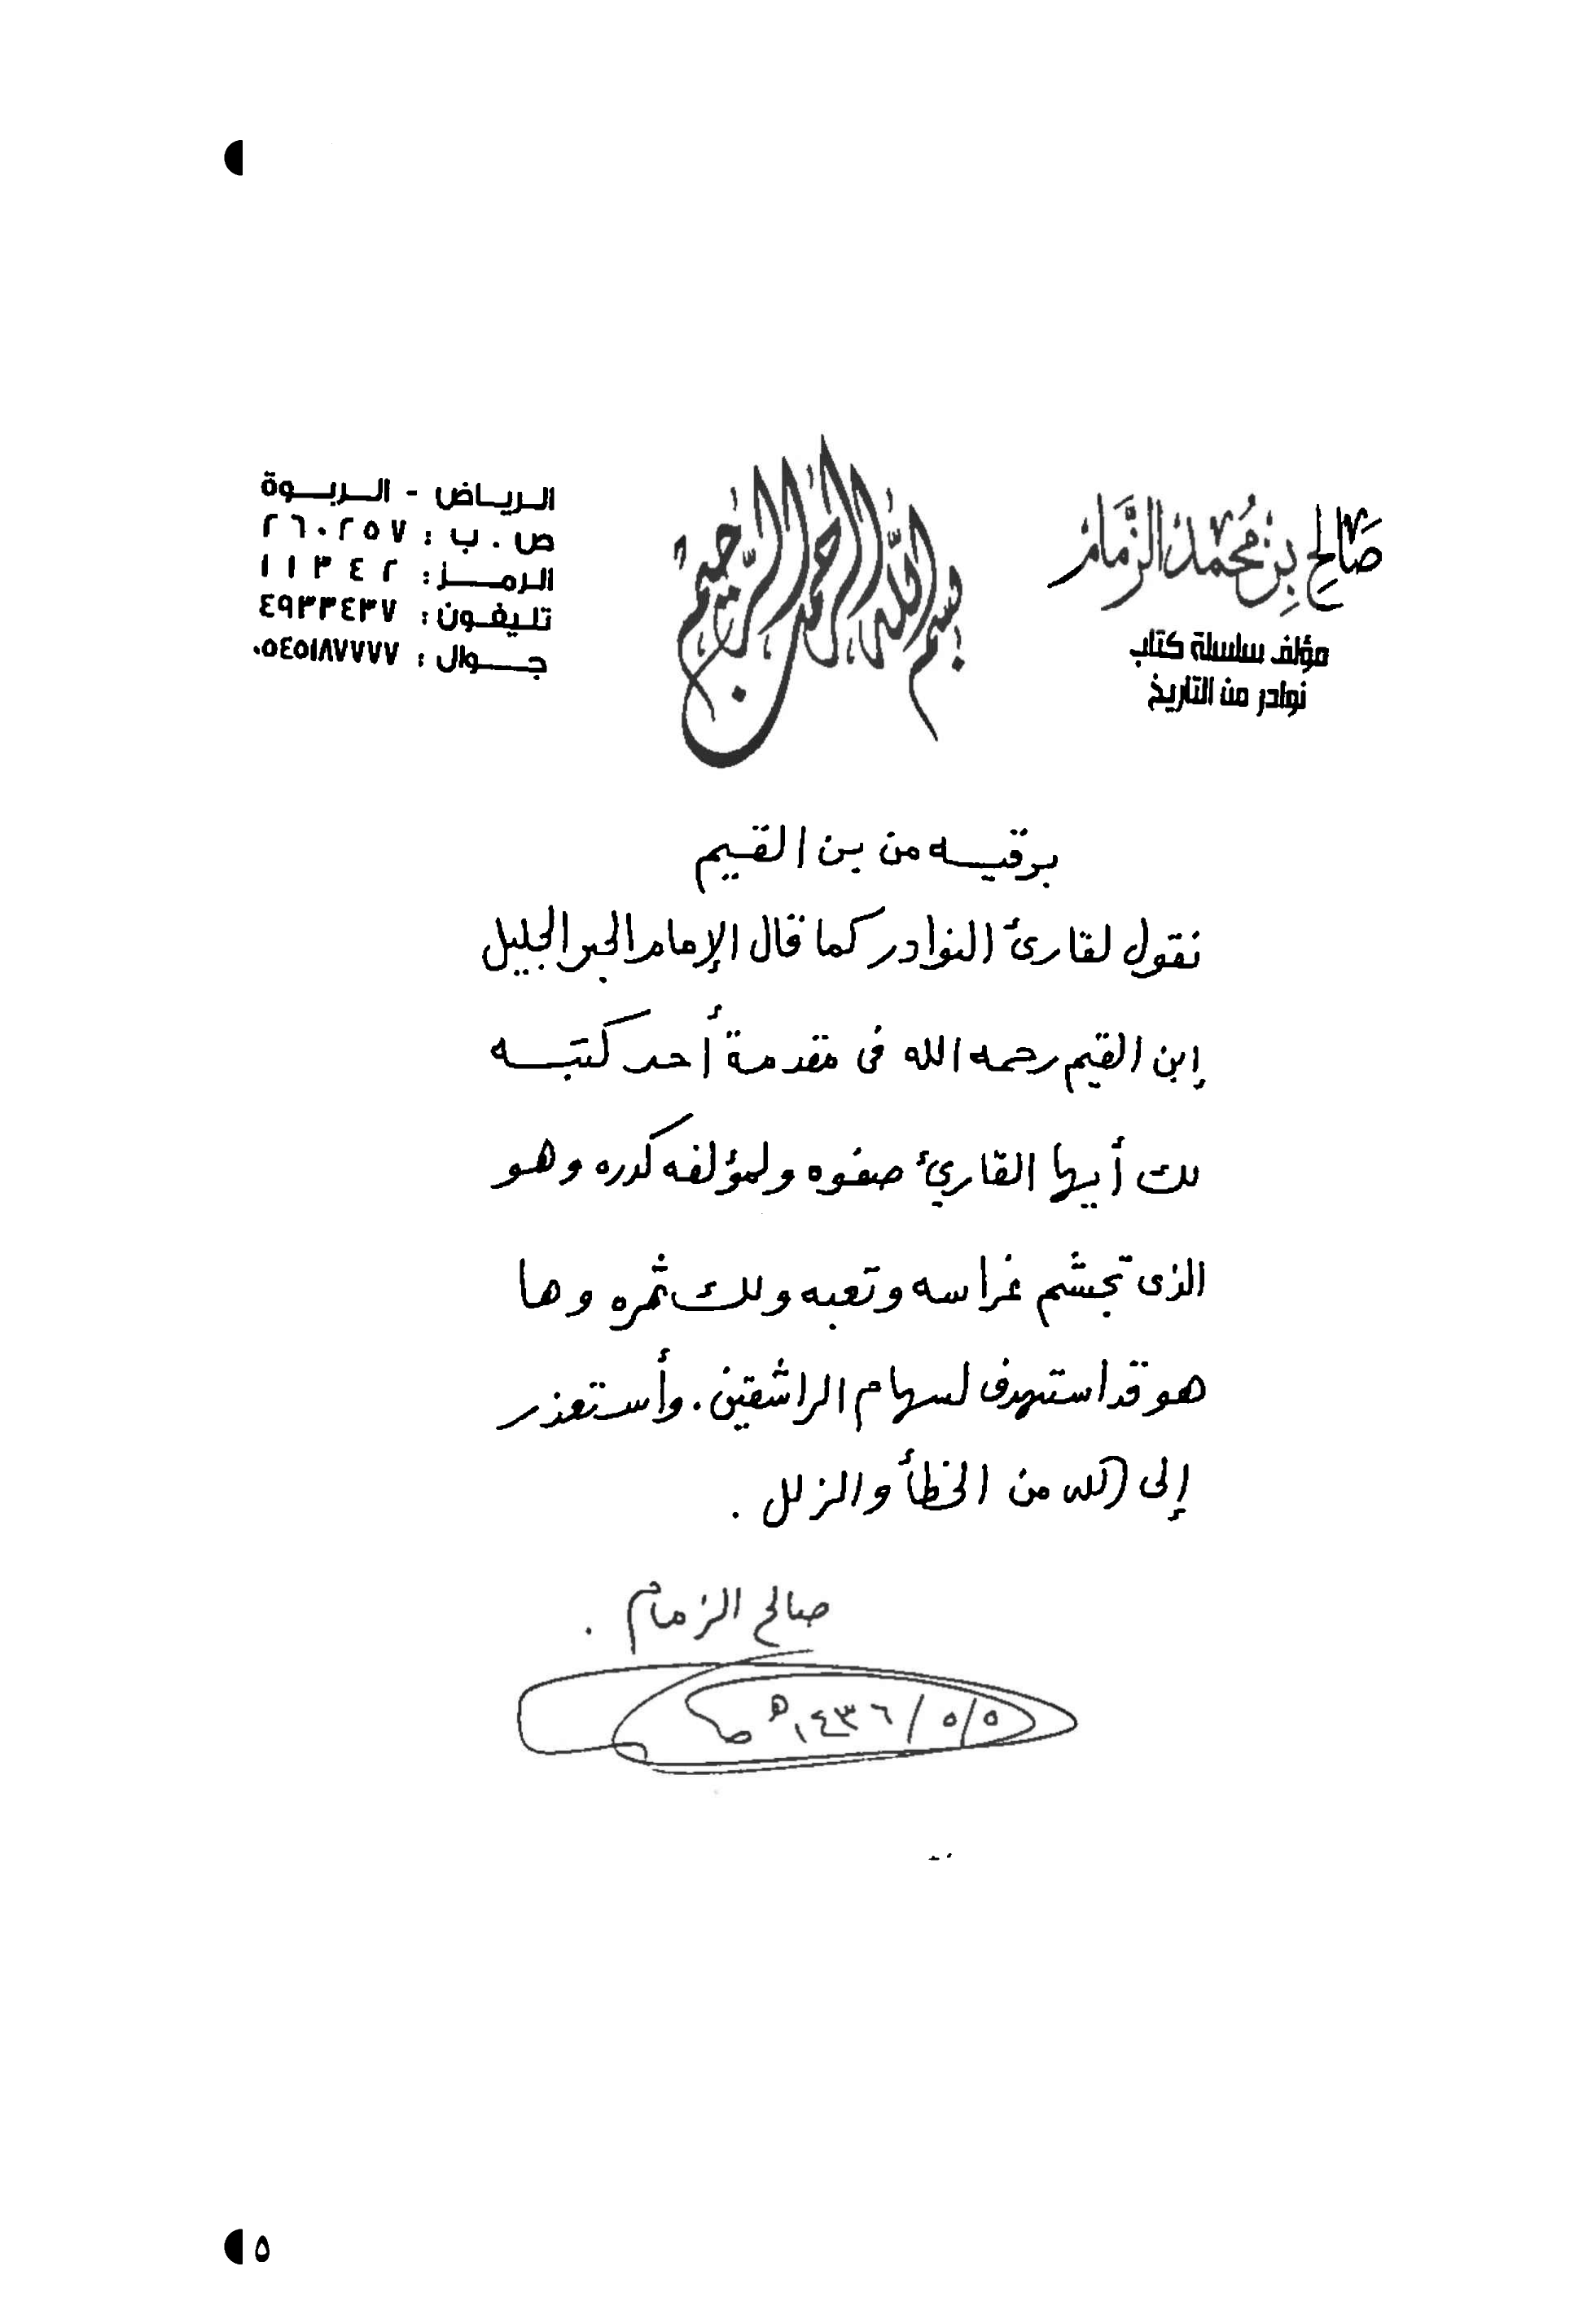 صَالِح بِن مُحَمد الزَّمَام
مؤلف سلسلة كتاب
نوادر من التاريخ
بسم الله الرحمن الرحيم
الرياض - الربوة
ص . ب : ٢٦٠٢٥٧
الرمز : ١١٣٤٢
تليفون : ٤٩٣٣٤٣٧
جوال : ٠٥٤٥١٨٧٧٧٧
برقيه من بن القيم
نقول لقارئ النوادر كما قال الإمام الحبر الجليل
إبن القيم رحمه الله في مقدمة أحد كتبه
لك أيها القارئ صفوه ولمؤلفه كدره وهو
الذى تجشم غراسه وتعبه ولك ثمره وها
هو قد استهدف لسهام الراشقين . وأستعذر
إلى الله من الخطأ والزلل .
صالح الزمام .
٥/٥/١٤٣٦هـ
٥